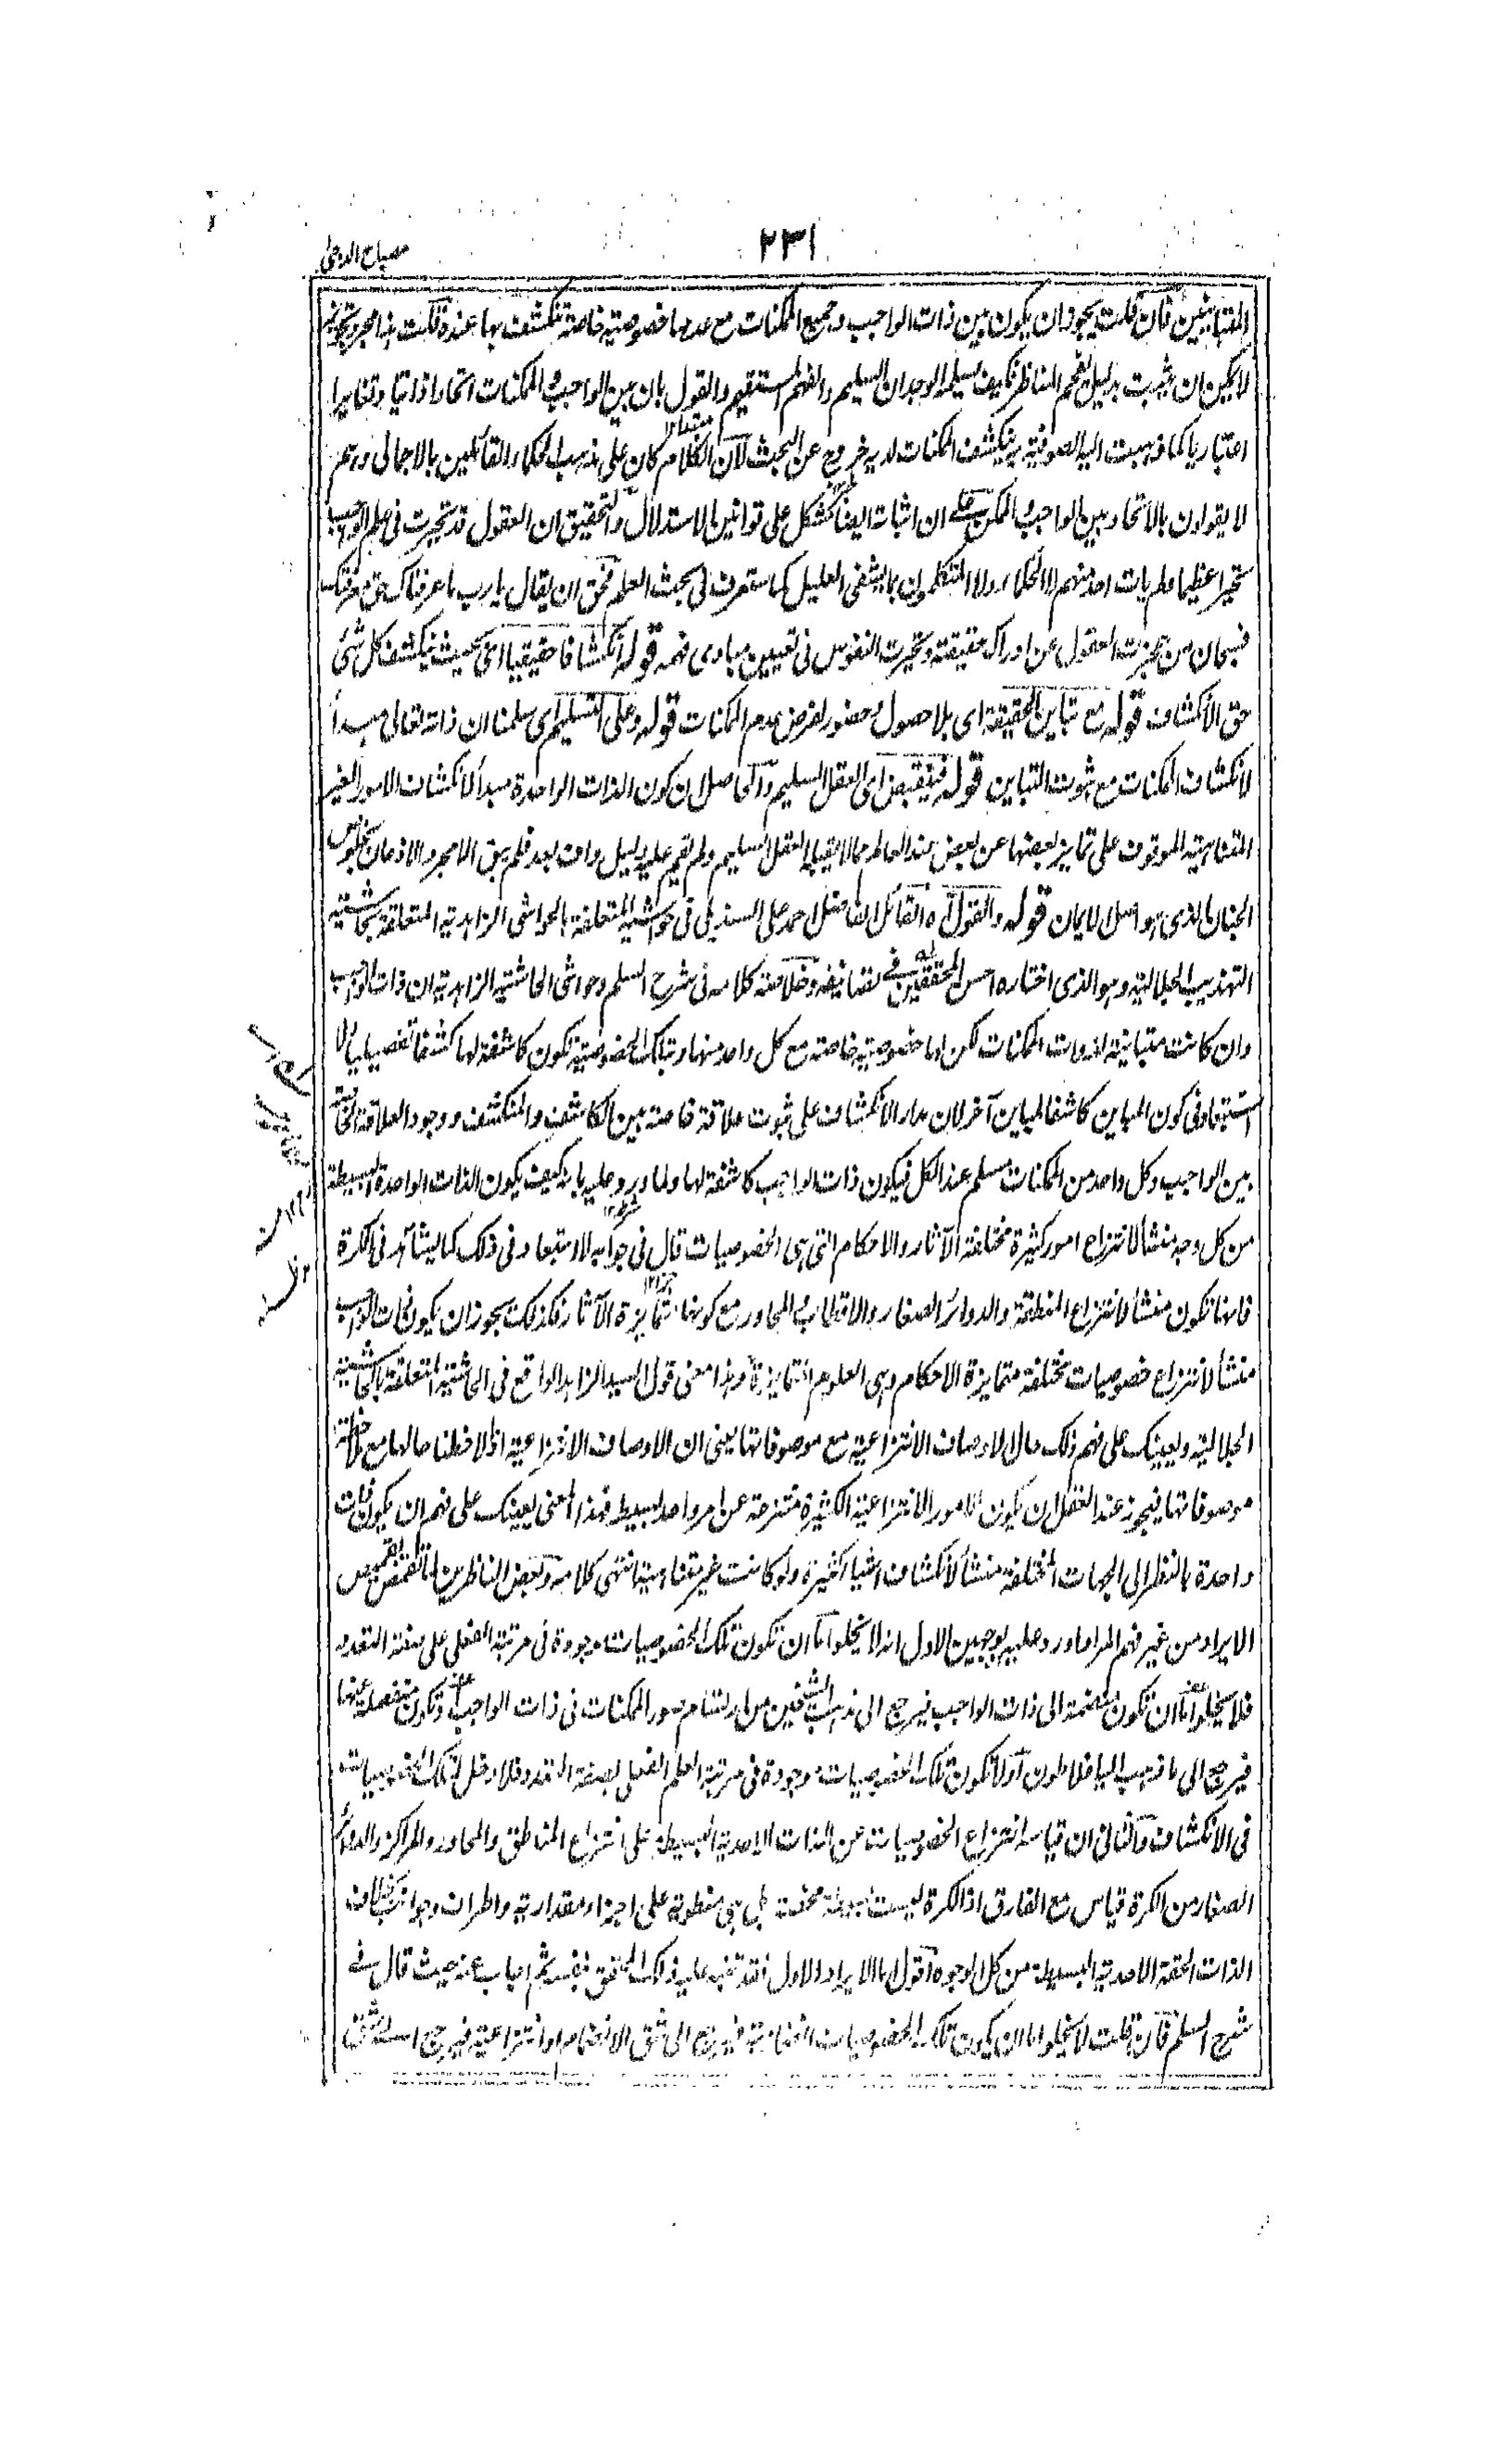 مصباح الدجى
٢٣١
المتباينين فان قلت يجوز ان يكون بين ذات الواجب وجميع الممكنات مع عدمها خصوصية خاصة تنكشف بها عنده قلت هذا مجرد تجويز
لا يمكن ان يثبت بدليل يفحم المناظر فكيف يسلمه الوجدان السليم والفهم المستقيم والقول بان بين الواجب والممكنات اتحادا ذاتيا وتغايرا
اعتباريا كما ذهبت اليه الصوفية به ينكشف الممكنات لديه خروج عن البحث لان الكلام كان على مذهب الحكماء القائلين بالاجمالي وهم
لا يقولون بالاتحاد بين الواجب والممكن على ان اثباته ايضا مشكل على قوانين الاستدلال والتحقيق ان العقول قد تحيرت في علم الواجب
تحيرا عظيما ولم يات احد منهم لا الحكماء ولا المتكلمون بما يشفي العليل كما ستعرف في بحث العلم فحق ان يقال يا رب ما عرفناك حق معرفتك
فسبحان من عجزت العقول عن ادراك حقيقته وتحيرت النفوس في تعيين مبادي فهمه قوله انكشافا حقيقيا اي بحيث ينكشف كل شئ
حق الانكشاف قوله مع تباين الحقيقة اي بلا حصول وحضور لفرض عدم الممكنات قوله وعلى التسليم اي سلمنا ان ذاته تعالى مبدأ
لانكشاف الممكنات مع ثبوت التباين قوله فينقبض اي العقل السليم والحاصل ان كون الذات الواحدة مبدأ لانكشاف الامور الغير
المتناهية الموقوف على تمايز بعضها عن بعض عند العالم مما لا يقبله العقل السليم ولم يقم عليه دليل واف بعد فلم يبق الا مجرد الاذعان بخلوص
الجنان بالذي هو اصل الايمان قوله والقول اه القائل الفاضل احمد علي السنديلي في حواشيه المتعلقة بالحواشي الزاهدية المتعلقة بحاشية
التهذيب الجلالية وهو الذي اختاره احسن المحققين في تصانيفه وخلاصة كلامه في شرح السلم وحواشي الحاشية الزاهدية ان ذات الواجب
وان كانت متباينة لذوات الممكنات لكن لها خصوصية خاصة مع كل واحد منها وبتلك الخصوصية تكون كاشفة لها كشفا تفصيليا ولا
استبعاد في كون المباين كاشفا لمباين آخر لان مدار الانكشاف على ثبوت علاقة خاصة بين الكاشف والمنكشف ووجود العلاقة الخاصة
بين الواجب وكل واحد من الممكنات مسلم عند الكل فيكون ذات الواجب كاشفة لها ولما ورد عليه بانه كيف يكون الذات الواحدة البسيطة
من كل وجه منشأ لانتزاع امور كثيرة مختلفة الآثار والاحكام التي هي الخصوصيات قال في جوابه لا استبعاد في ذلك كما يشاهد في الكرة
فانها تكون منشأ لانتزاع المنطقة والدوائر الصغار والاقطاب والمحاور مع كونها متمايزة الآثار فكذلك يجوز ان يكون ذات الواجب
منشأ لانتزاع خصوصيات مختلفة متمايزة الاحكام وهي العلوم المتمايزة وهذا معنى قول السيد الزاهد الواقع في الحاشية المتعلقة بالحاشية
الجلالية ويعينك على فهم ذلك حال الاوصاف الانتزاعية مع موصوفاتها يعني ان الاوصاف الانتزاعية اذا لاحظنا حالها مع ملاحظة
موصوفاتها فيجوز عند العقل ان يكون الامور الانتزاعية الكثيرة منتزعة عن امر واحد بسيط فهذا المعنى يعينك على فهم ان يكون ذات
واحدة بالنظر الى الجهات المختلفة منشأ لانكشاف اشياء كثيرة ولو كانت غير متناهية انتهى كلامه وبعض الناظرين المتقمص بقميص
الايراد من غير فهم المراد اورد عليه بوجهين الاول انه لا يخلو اما ان تكون تلك الخصوصيات موجودة في مرتبة الفعلي على صفة التعدد
فلا يخلو اما ان تكون منضمة الى ذات الواجب فيرجع الى مذهب الشيخين من ارتسام صور الممكنات في ذات الواجب او تكون منفصلة عنها
فيرجع الى ما ذهب اليه افلاطون او لا تكون تلك الخصوصيات موجودة في مرتبة العلم الفعلي بصفة التعدد فلا دخل لتلك الخصوصيات
في الانكشاف والثاني ان قياس انتزاع الخصوصيات عن الذات الاحدية البسيطة على انتزاع المناطق والمحاور والمراكز والدوائر
الصغار من الكرة قياس مع الفارق اذ الكرة ليست بسيطة محضة بل هي منطوية على اجزاء مقدارية واطراف وجوانب بخلاف
الذات الحقة الاحدية البسيطة من كل الوجوه اقول اما الايراد الاول فقد تنبه عليه ذلك المحقق بنفسه ثم اجاب عنه حيث قال في
شرح السلم فان قلت لا يخلو اما ان يكون تلك الخصوصيات انضمامية فيرجع الى شق الانضمام او انتزاعية فيرجع الى شق